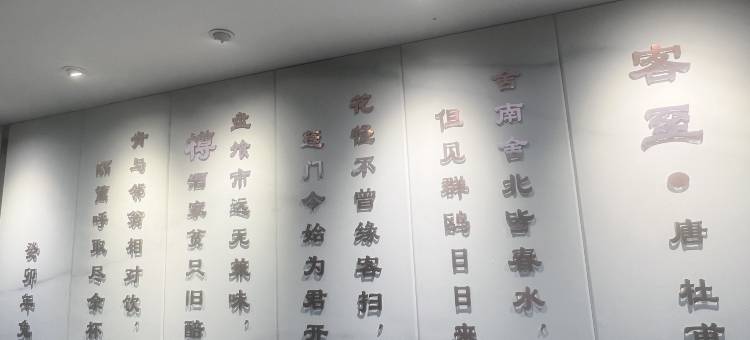 客至·唐 杜甫
舍南舍北皆春水，
但见群鸥日日来
花径不曾缘客扫，
蓬门今始为君开
盘飧市远无兼味，
樽酒家贫只旧醅
肯与邻翁相对饮，
隔篱呼取尽余杯
癸卯